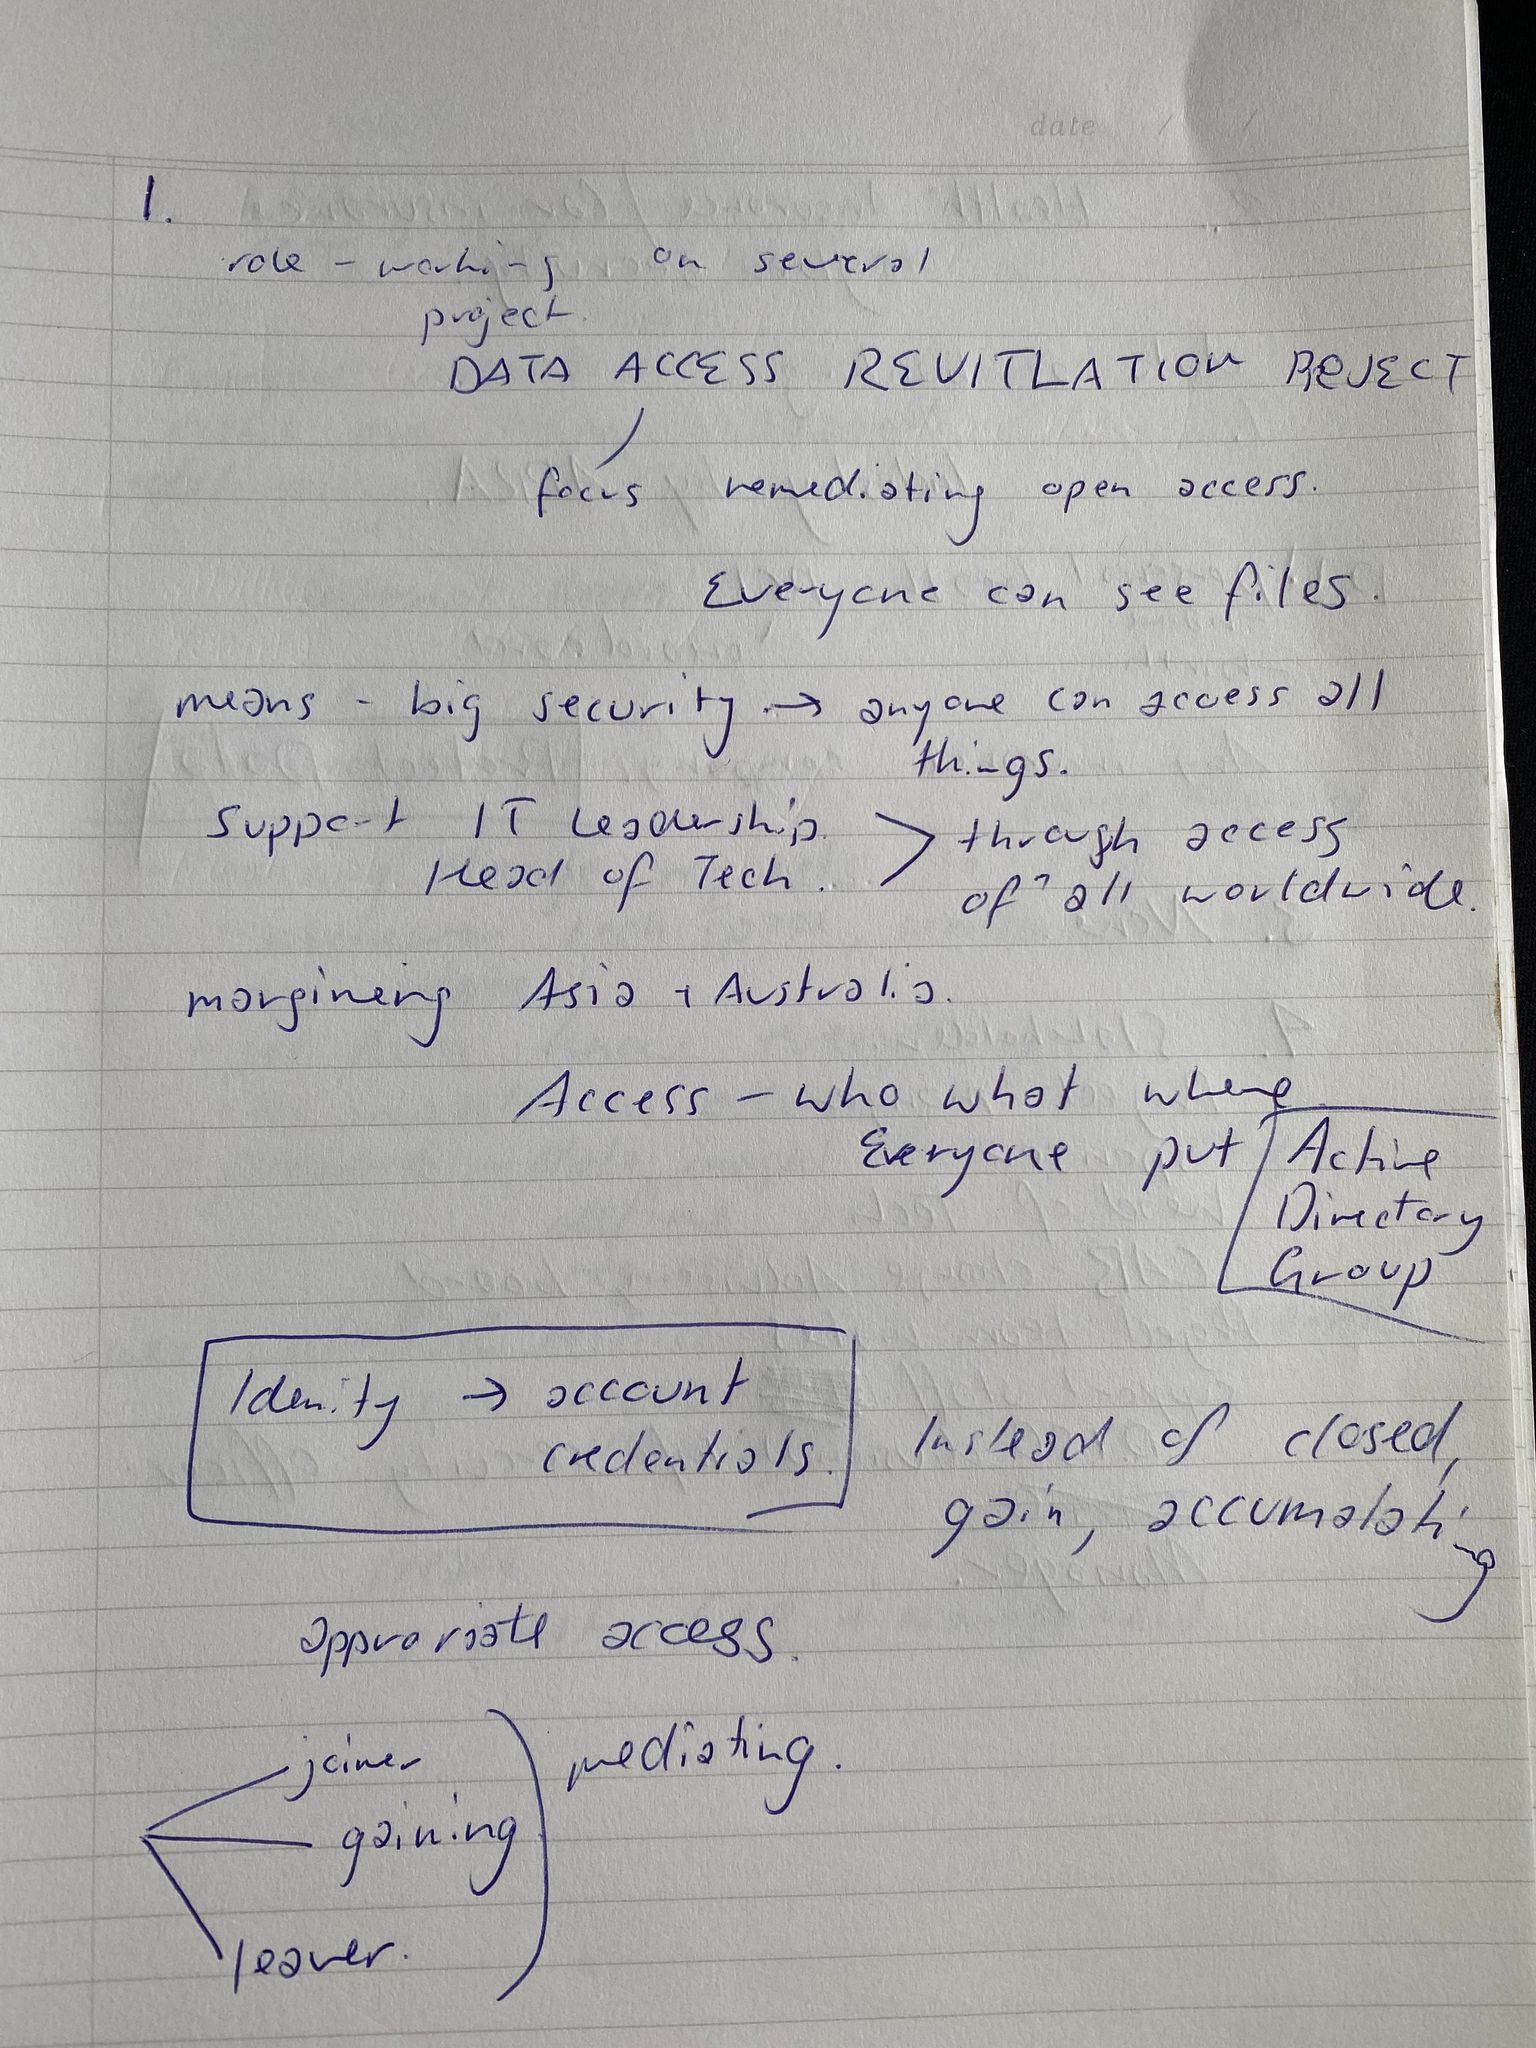 date / /
1.
role - working on several
project.
DATA ACCESS REVITLATION PROJECT
focus remediating open access.
Everyone can see files.
means - big security → anyone can access all
things.
Support IT Leadership.
Head of Tech.
> through access
of all worldwide.
margineing Asia + Australia.
Access - who what where
Everyone put
Active
Directory
Group
Idenity → account
credentials.
Instead of closed,
gain, accumalating
approriate access.
joiner
gaining
leaver.
mediating.